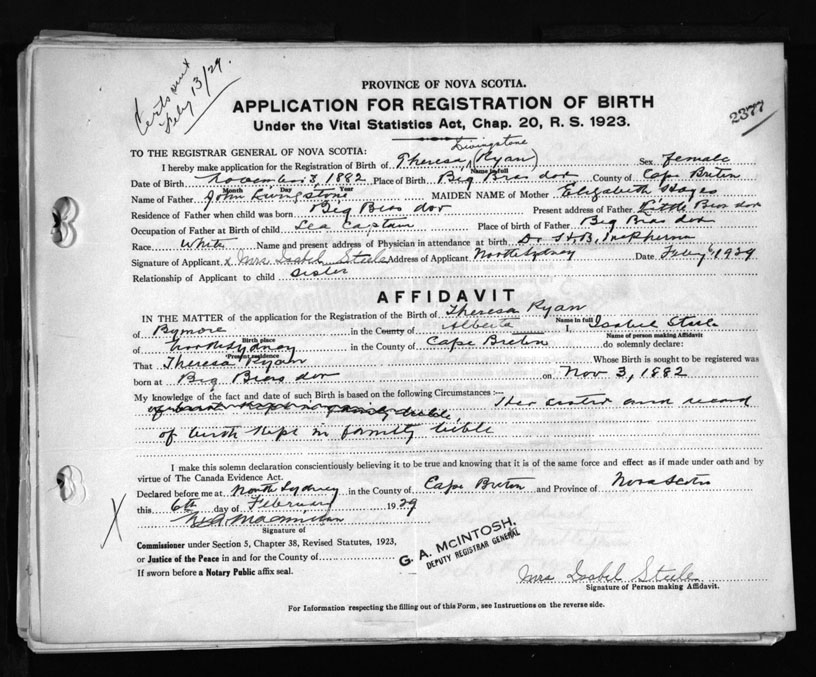 Certs sent
Feby 13/29.
PROVINCE OF NOVA SCOTIA.
APPLICATION FOR REGISTRATION OF BIRTH
2377
Under the Vital Statistics Act, Chap. 20, R. S. 1923.
Livingstone
TO THE REGISTRAR GENERAL OF NOVA SCOTIA:
I hereby make application for the Registration of Birth of Theresa (Ryan) Sex female
Name in full
Date of Birth November 3, 1882 Place of Birth Big Bras dor County of Cape Breton
Month Day Year
Name of Father John Livingstone MAIDEN NAME of Mother Elizabeth Hayes
Residence of Father when child was born Big Bras dor Present address of Father Little Bras dor
Occupation of Father at Birth of child Sea Captain Place of birth of Father Big Bras dor
Race White Name and present address of Physician in attendance at birth Dr
Signature of Applicant x Mrs Isabel Steele Address of Applicant North Sydney Date Feby 1929
Relationship of Applicant to child sister
AFFIDAVIT
IN THE MATTER of the application for the Registration of the Birth of Theresa Ryan
Name in full
of Bymore in the County of Alberta I, Isabel Steele
Birth place Name of person making Affidavit
of North Sydney in the County of Cape Breton do solemnly declare:
Present residence
That Theresa Ryan Whose Birth is sought to be registered was
born at Big Bras dor on Nov 3, 1882
My knowledge of the fact and date of such Birth is based on the following Circumstances :—
Her sister and record
of birth kept in family bible
I make this solemn declaration conscientiously believing it to be true and knowing that it is of the same force and effect as if made under oath and by
virtue of The Canada Evidence Act.
Declared before me at North Sydney in the County of Cape Breton and Province of Nova Scotia
this 6th day of February 1929
Signature of
X
Commissioner under Section 5, Chapter 38, Revised Statutes, 1923,
or Justice of the Peace in and for the County of
If sworn before a Notary Public affix seal.
G. A. McINTOSH,
DEPUTY REGISTRAR GENERAL
Mrs Isabel Steele
Signature of Person making Affidavit.
For Information respecting the filling out of this Form, see Instructions on the reverse side.